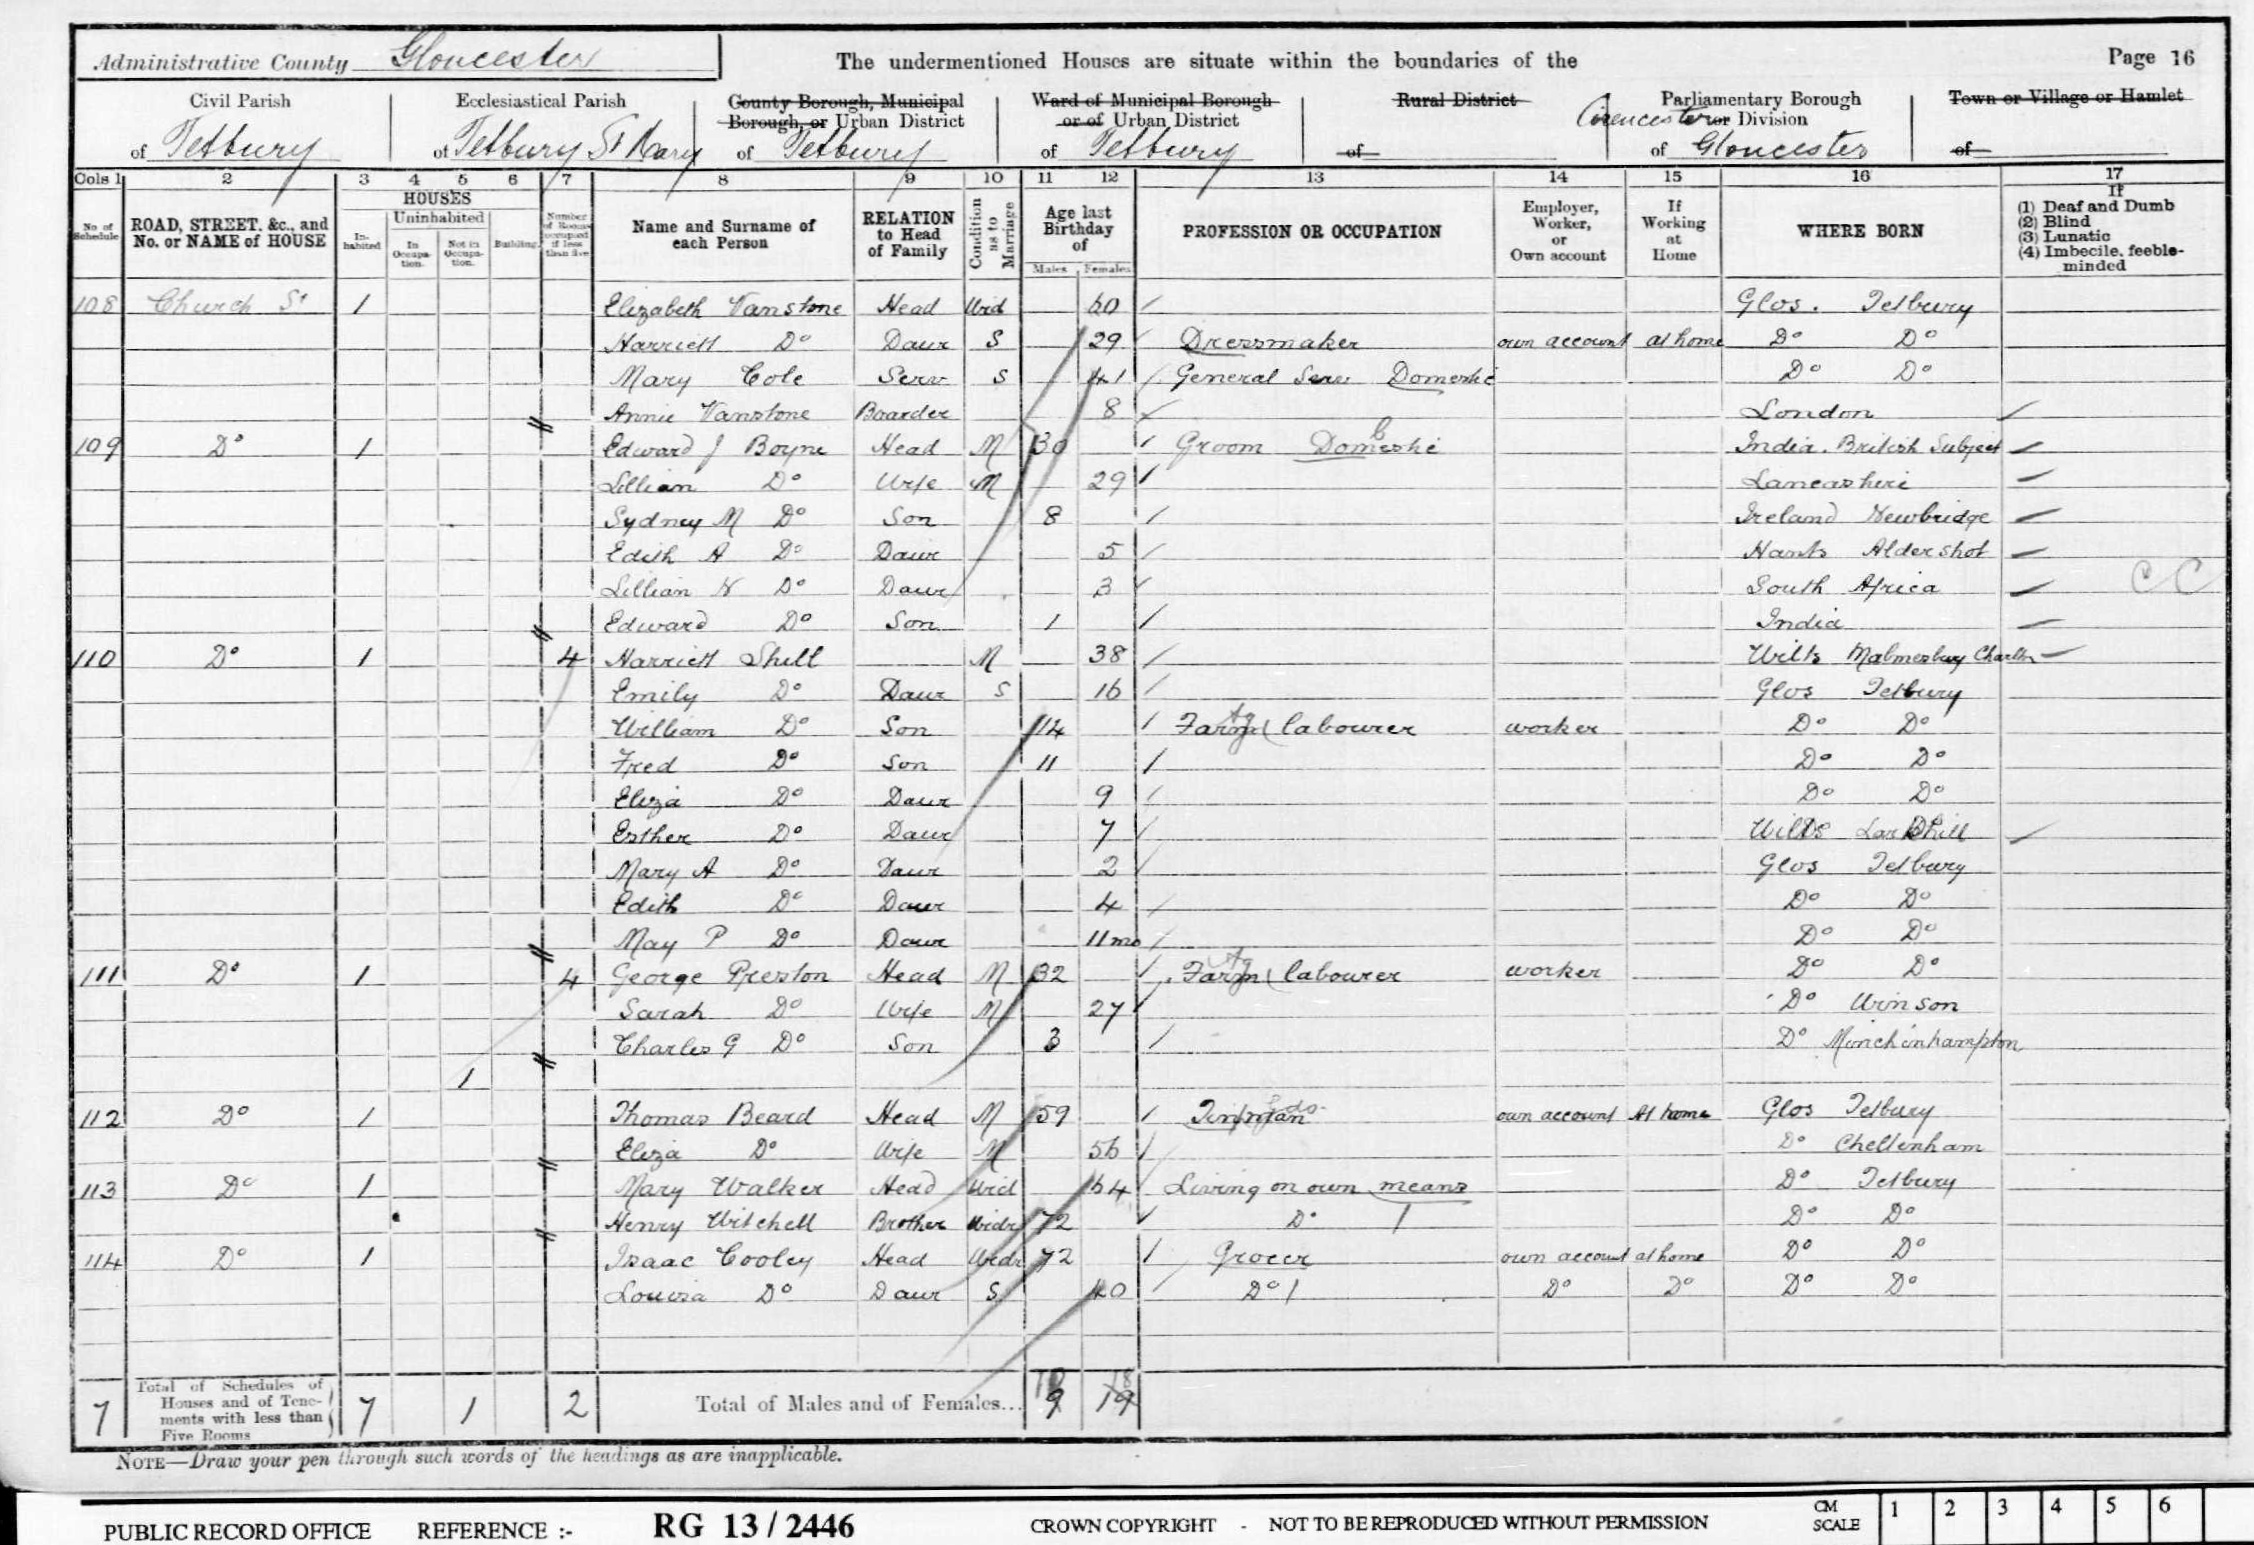 Administrative County Gloucester The undermentioned Houses are situate within the boundaries of the Page 16
Civil Parish of Tetbury
Ecclesiastical Parish of Tetbury St Mary
County Borough, Municipal Borough, or Urban District of Tetbury
Ward of Municipal Borough or of Urban District of Tetbury
Rural District of
Parliamentary Borough or Division of Cirencester Gloucester
Town or Village or Hamlet of
Cols 1 2 3 4 5 6 7 8 9 10 11 12 13 14 15 16 17
No of Schedule
ROAD, STREET, &c., and No. or NAME of HOUSE
HOUSES
Inhabited
Uninhabited
In Occupation.
Not in Occupation.
Building
Number of Rooms occupied if less than five
Name and Surname of each Person
RELATION to Head of Family
Condition as to Marriage
Age last Birthday of
Males Females
PROFESSION OR OCCUPATION
Employer, Worker, or Own account
If Working at Home
WHERE BORN
If
(1) Deaf and Dumb
(2) Blind
(3) Lunatic
(4) Imbecile, feeble-minded
108 Church St 1 Elizabeth Vanstone Head Wid 60 Glos. Tetbury
Harriett Do Daur S 29 Dressmaker own account at home Do Do
Mary Cole Serv S 41 General Serv Domestic Do Do
Annie Vanstone Boarder 8 London
109 Do 1 Edward J Boyne Head M 30 Groom Domestic India. British Subject
Lillian Do Wife M 29 Lancashire
Sydney M Do Son 8 Ireland Newbridge
Edith A Do Daur 5 Hants Aldershot
Lillian N Do Daur 3 South Africa CC
Edward Do Son 1 India
110 Do 1 4 Harriett Shell M 38 Wilts Malmesbury Charlton
Emily Do Daur S 16 Glos Tetbury
William Do Son 14 Farm Ag labourer worker Do Do
Fred Do Son 11 Do Do
Eliza Do Daur 9 Do Do
Esther Do Daur 7 Wilts
Mary A Do Daur 2 Glos Tetbury
Edith Do Daur 4 Do Do
May P Do Daur 11mo Do Do
111 Do 1 4 George Preston Head M 32 Farm Ag labourer worker Do Do
Sarah Do Wife M 27 Do Winson
Charles G Do Son 3 Do Minchinhampton
1
112 Do 1 Thomas Beard Head M 59 Tinman own account At home Glos Tetbury
Eliza Do Wife M 56 Do Cheltenham
113 Do 1 Mary Walker Head Wid 64 Living on own means Do Tetbury
Henry Witchell Brother Widr 72 Do Do Do
114 Do 1 Isaac Cooley Head Widr 72 Grocer own account at home Do Do
Louisa Do Daur S 40 Do Do Do Do Do
7 Total of Schedules of Houses and of Tenements with less than Five Rooms 7 1 2 Total of Males and of Females... 10 9 18 19
NOTE—Draw your pen through such words of the headings as are inapplicable.
PUBLIC RECORD OFFICE REFERENCE :- RG 13 / 2446 CROWN COPYRIGHT - NOT TO BE REPRODUCED WITHOUT PERMISSION CM SCALE 1 2 3 4 5 6